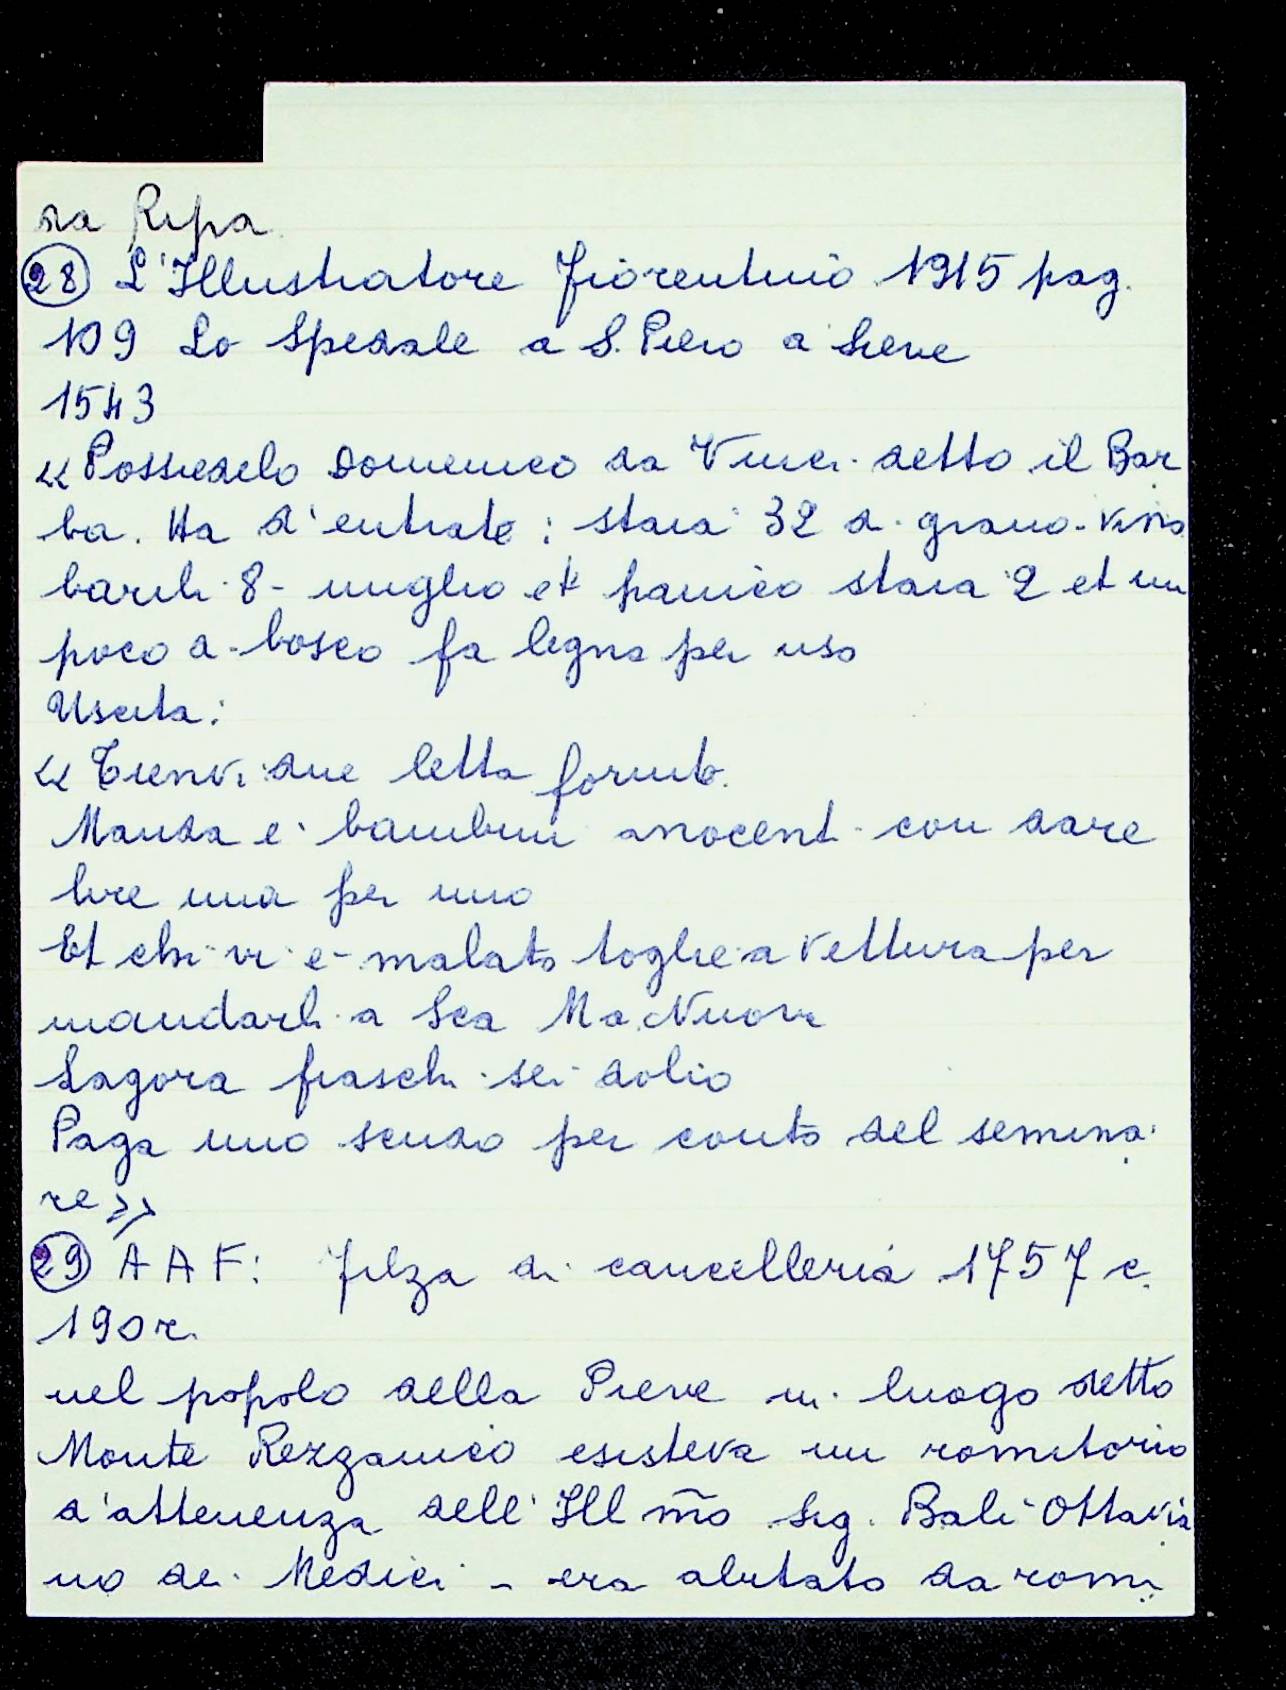 da Ripa
28 L'Illustratore Fiorentino 1915 pag.
109 Lo Spedale a S. Piero a Sieve
1543
« Possiedelo Domenico da Vinci detto il Bar
ba. Ha d'entrate: staia 32 di grano - vino
barili 8 - miglio et panico staia 2 et un
poco di bosco fa legna per uso
Uscita:
« Tienvi due letta fornite.
Manda e' bambini innocenti con dare
lire una per uno
Et chi vi è malato toglie a vettura per
mandarli a Sca Ma Nuova
Lagora fiaschi sei dolio
Paga uno scudo per conto del semina
re »
29 A A F: Filza di cancelleria 1757 c.
190 r.
nel popolo della Pieve in luogo detto
Monte Rezzanico esisteva un romitorio
d'attenenza dell' Ill mo Sig. Balì Ottavia
no dei Medici - era abitato da romi